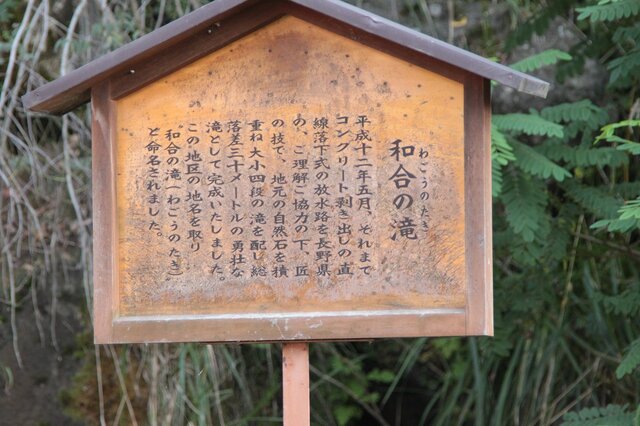 わごうのたき
和合の滝
平成十二年五月、それまで
コンクリート剥き出しの直
線落下式の放水路を長野県
の、ご理解ご協力の下、匠
の技で、地元の自然石を積
重ね大小四段の滝を配し総
落差三十メートルの勇壮な
滝として完成いたしました。
この地区の地名を取り
和合の滝(わごうのたき)
と命名されました。